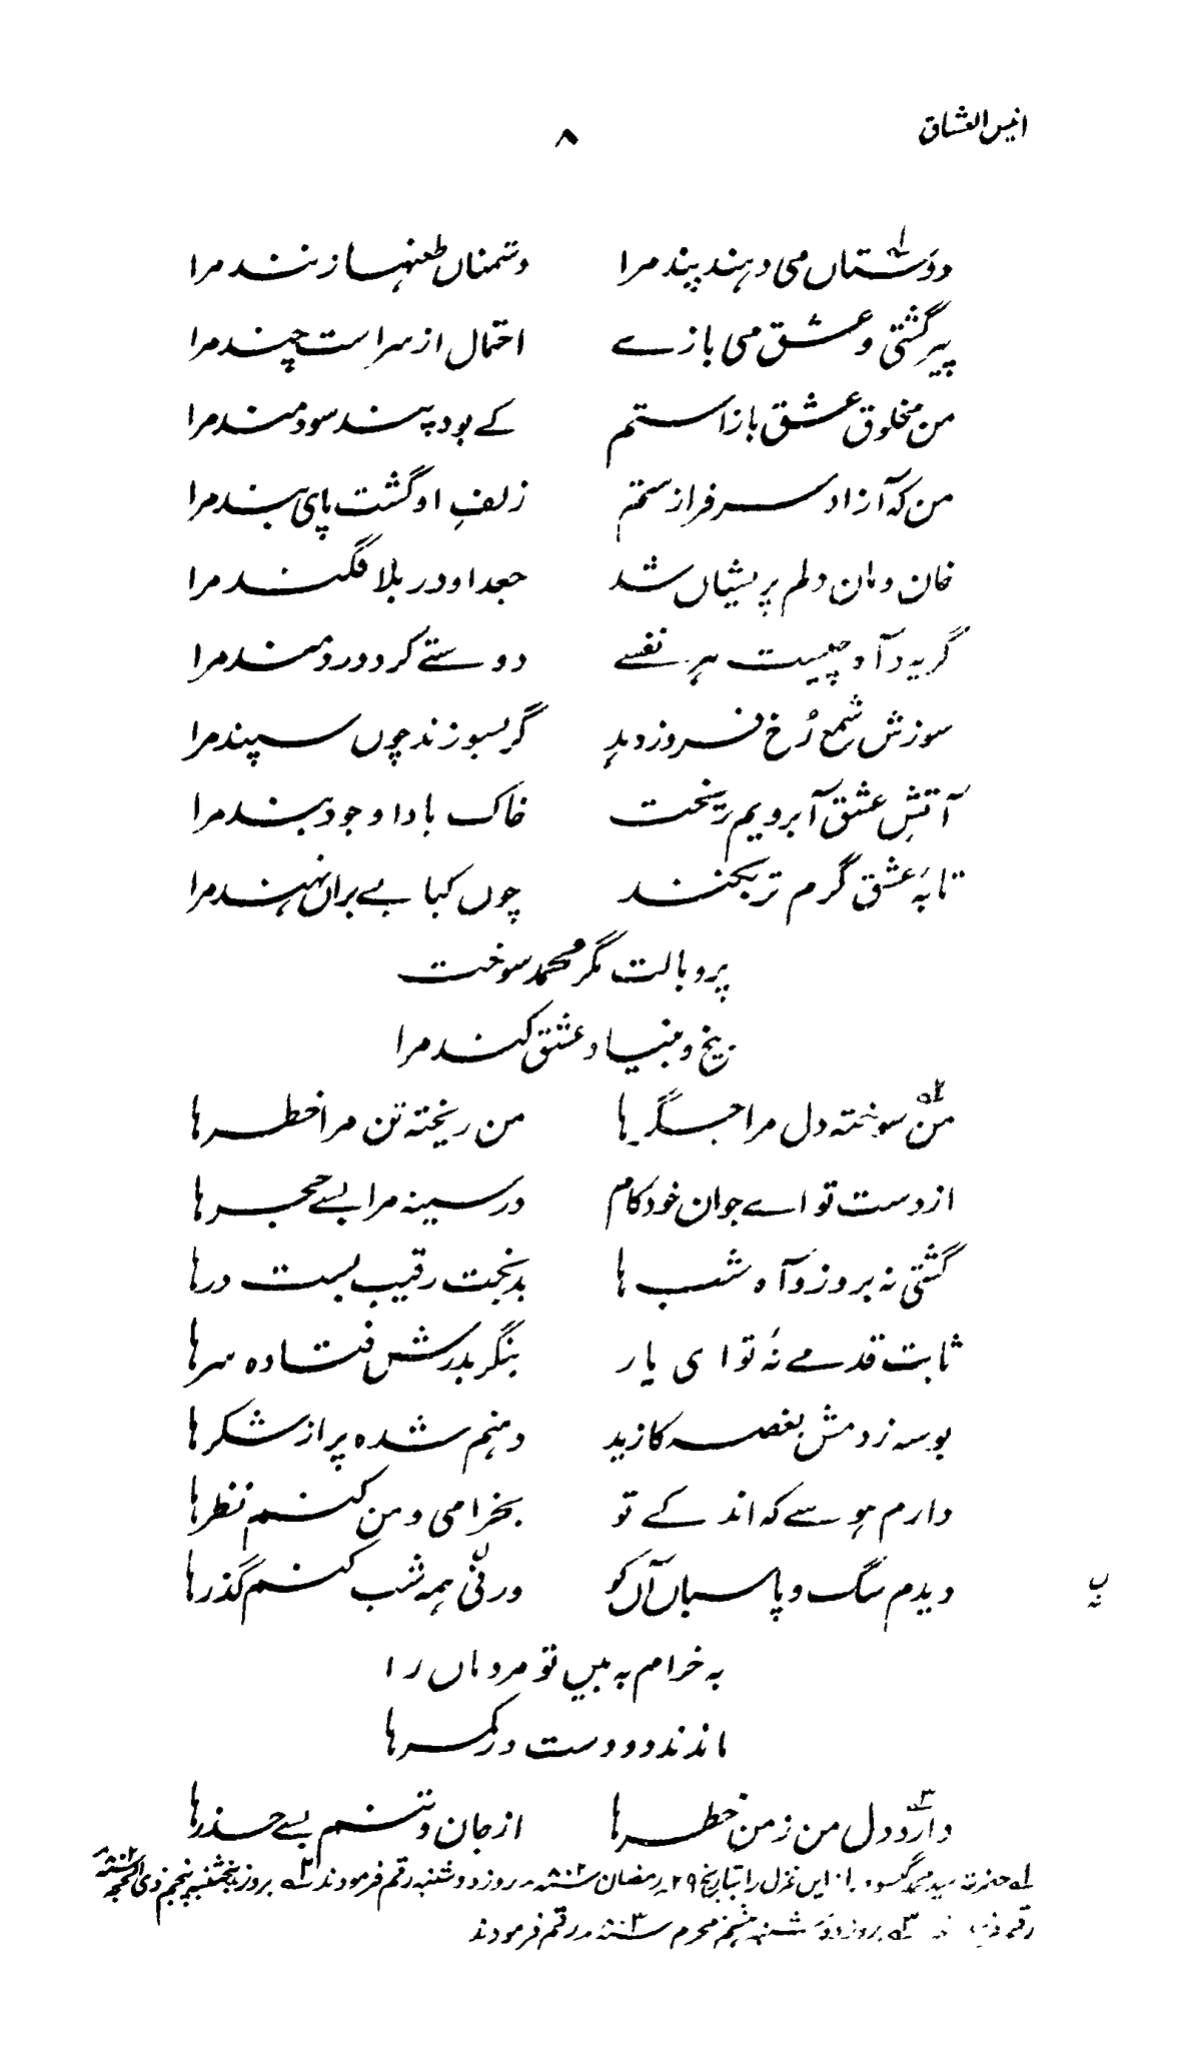 انیس العشاق
۸
دوستاں می دہند پند مرا دشمناں طعنہا زنند مرا
پیر گشتی و عشق می بازے احتمال از سراست چند مرا
من مخلوق عشق بازاستم کے بود پند سودمند مرا
من کہ آزاد سرفرازستم زلفِ او گشت پای بند مرا
خان و مان دلم پریشاں شد جعد او در بلا فگند مرا
گریہ و آہ چیست ہر نفسے دوستے کرد دردمند مرا
سوزش شمع رُخ فروز دید گر بسوزند چوں سپند مرا
آتشِ عشق آبرویم ریخت خاک باداوجود بند مرا
تابہ عشق گرم تر بکنند چوں کبابے براں نہند مرا
پر و بالت مگر محمد سوخت
بیخ و بنیاد عشق کند مرا
من سوختہ دل مرا جگرہا من ریختہ تن مرا خطرہا
از دست تو اے جوان خودکام در سینہ مرا بسے حجرہا
گشتی نہ بروز و آہ شب ہا بدبخت رقیب بست درہا
ثابت قدمے نہ تو ای یار بنگر بدرش فتادہ سرہا
بوسہ زدمش بغصہ کازید دہنم شدہ پر از شکرہا
دارم ہوسے کہ اندکے تو بخرامی و من کنم نظرہا
دیدم سگ و پاسباں آں کو ورنی ہمہ شب کنم گذرہا
بہ خرام بہ بیں تو مردماں را
ماندند دو دست در کمرہا
دارد دل من زمن خطرہا از جان و تنم بسے حذرہا
لہ حضرت سید محمد گیسو دراز ایں غزل را بتاریخ ۲۹ رمضان سنہ ۸۰۲ روز دوشنبہ رقم فرمودند بروز پنجشنبہ پنجم ذی الحجہ سنہ ۸۰۲
رقم بروز دوشنبہ محرم سنہ ۸۰۳ رقم فرمودند